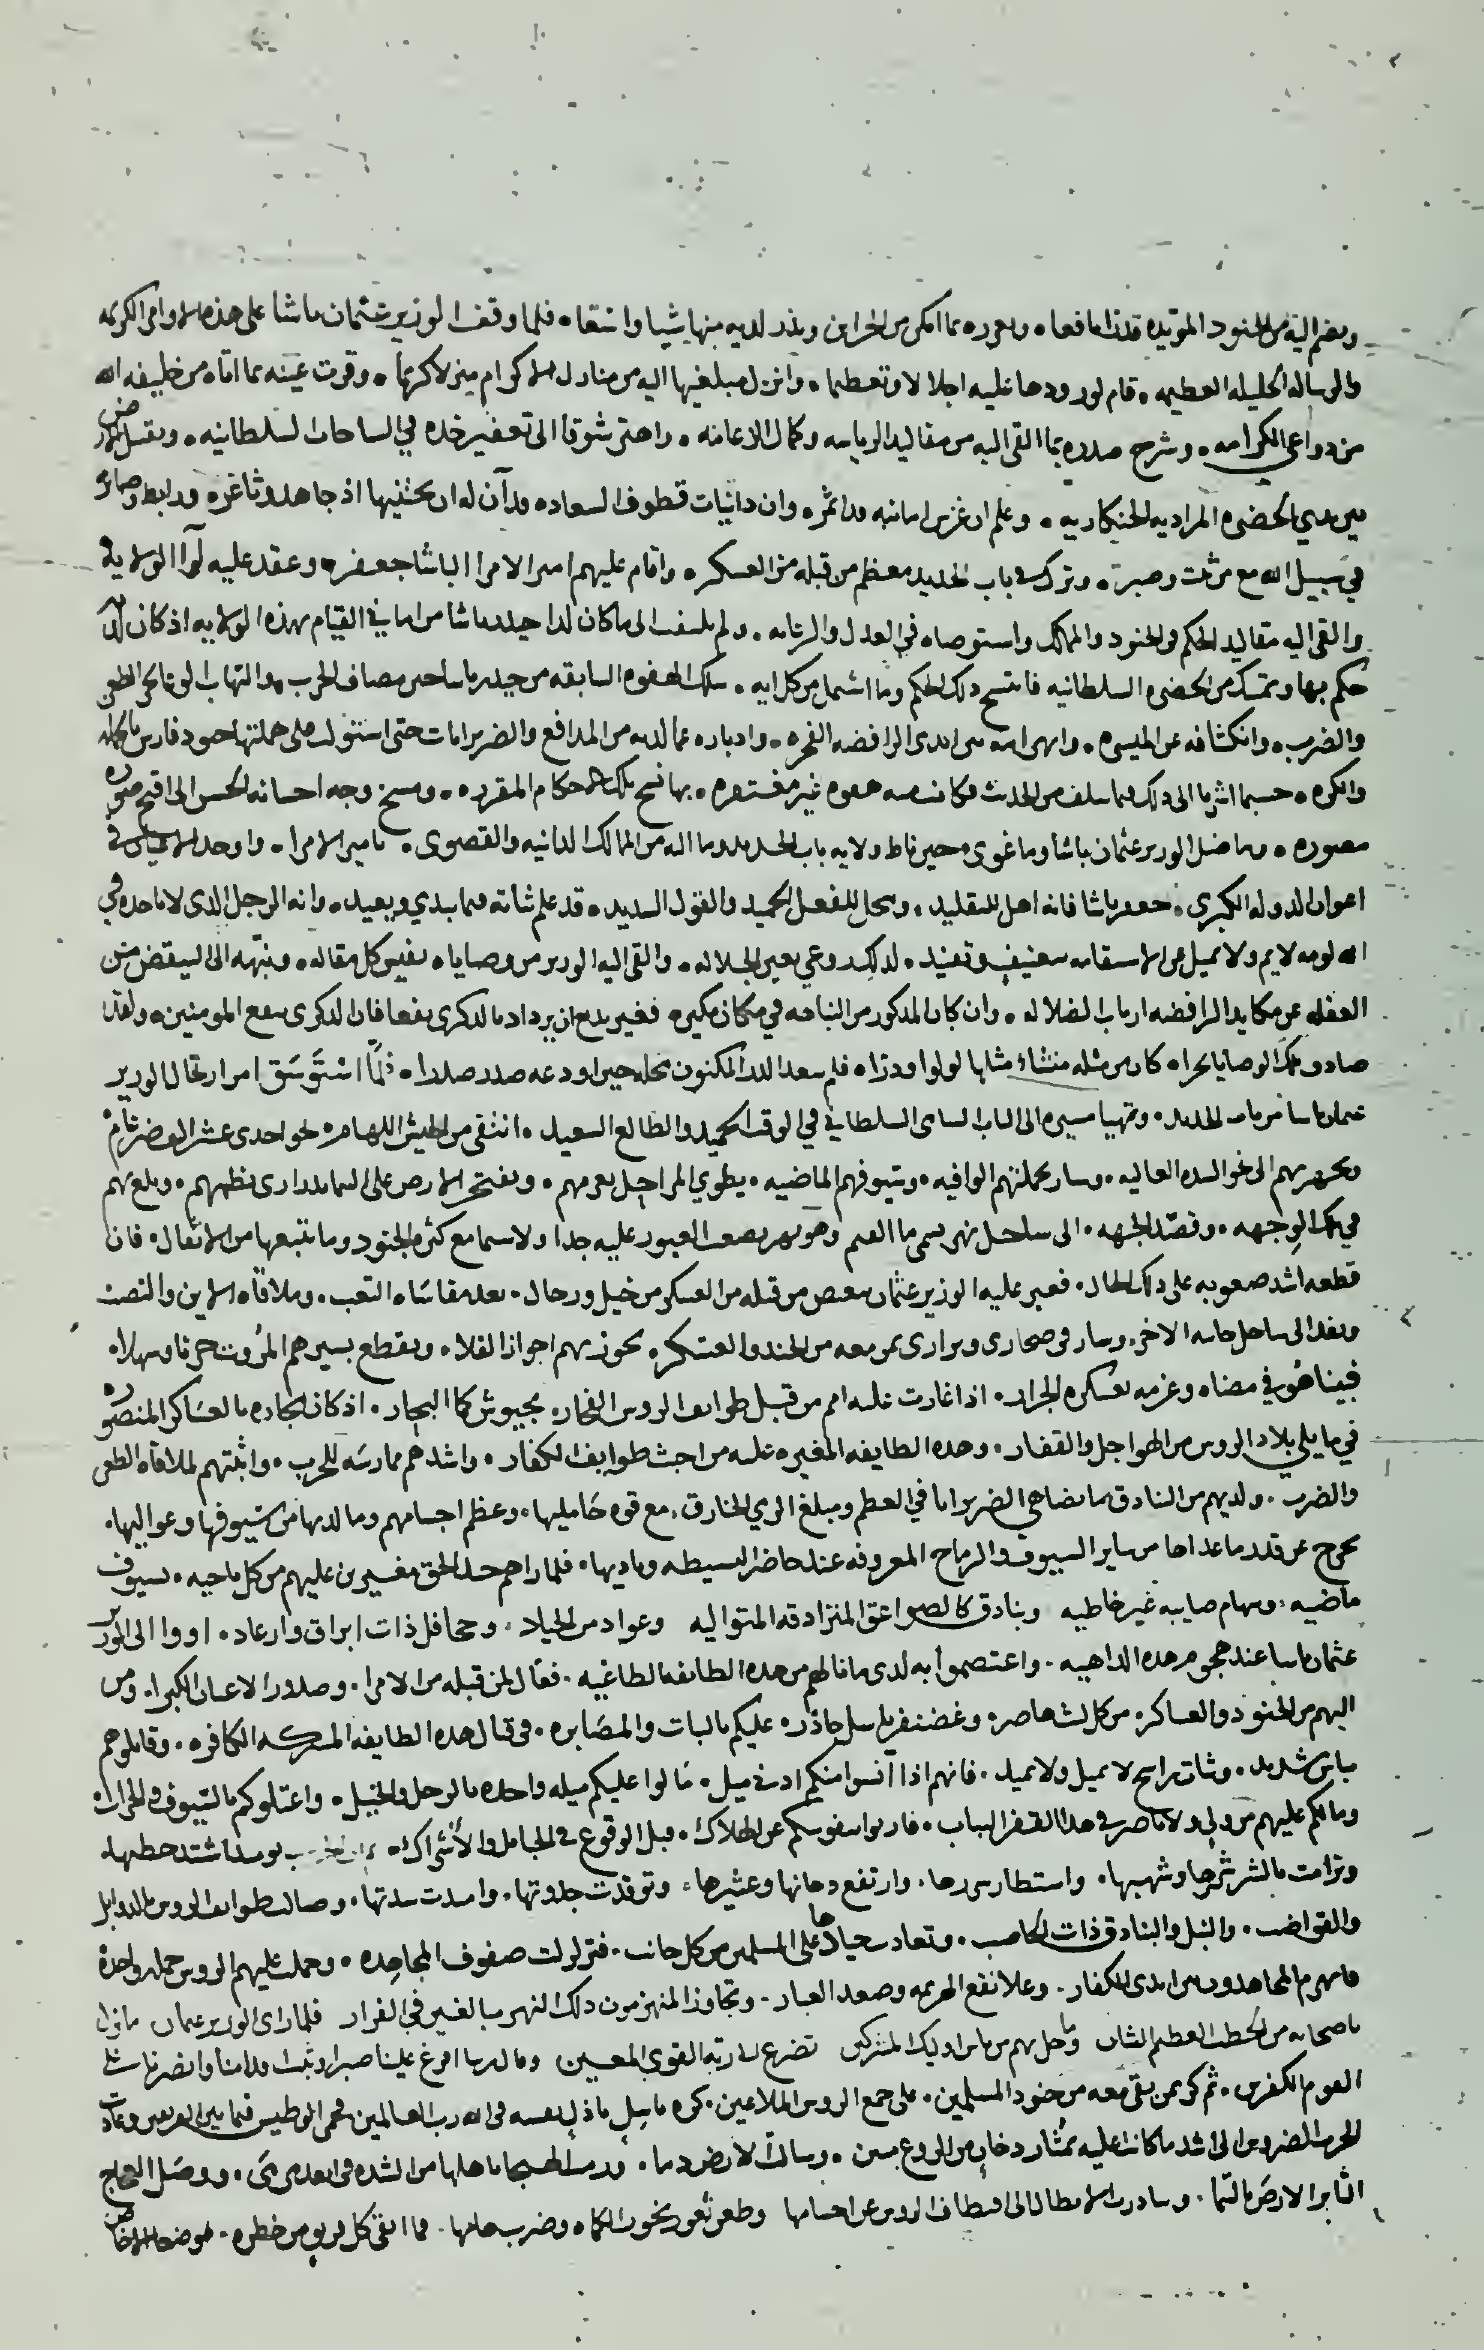 ويضم اليه من الجنود المؤيده قدرا نافعا • ويعززه بما امكن من الخزاين ويذر لديه منها شيا واسعا • فلما وقف الوزير عثمان باشا على هذه الاوامر الكريمه
والرساله الجليله العظيمه • قام لورودها عليه اجلالا وتعظيما • وانزل مبلغيها اليه من منازل الاكرام منزلا كريما • وقرت عينه بما اتاه من خليفه الله
من دواعي الكرامه • وشرح صدره بما القى اليه من مقاليد الرياسه وكمال الزعامه • واهتز شوقا الى تعفير خده في الساحات السلطانيه • وتقبيل الارض
بين يدي الحضره المراديه الخنكاريه • وعلم ان غرس امانيه قد اثمر • وان دانيات قطوف السعاده قد آن له ان يجتنيها اذ جاهد وثاغر • ورابط وصابر
في سبيل الله مع من ثبت وصبر • وترك في باب الحديد معظم من قبله من العسكر • واقام عليهم امير الامرا الباشا جعفر • وعقد عليه لوآ الولاية
والقى اليه مقاليد الحكم والجنود والممالك واستوصاه في العدل والرعايه • ولم يلتفت الى ما كان لدا حيدر باشا من اماني القيام بهذه الولايه اذ كان لديه
حكم بها وتمسك من الحضره السلطانيه فانتسخ ذلك الحكم وما اشتمل من كل ايه • بتلك الهفوه السابقه من حيدر باشا حين مصاف الحرب والتهاب الوغا بحر الطعن
والضرب • وانكشافه عن الميسره • وانهزامه من ايدي الرافضه الفجره • وادباره عما لديه من المدافع والضربزانات حتى استولت على جملتها جنود فارس بالحمله
والكره • حسبما اشرنا الى ذلك فيما سلف من الحديث فكانت منه هفوه غير مغتفره • بها نسخ تلك الاحكام المقرره • ومسخ وجه احسانه الحسن الى اقبح صوره
مصوره • وما ضل الوزير عثمان باشا وما غوى • حين ناط ولايه باب الحديد وما اليه من الممالك الدانيه والقصوى • بامير الامرا • واوحد الاعيان في
اعوان الدوله الكبرى • جعفر باشا فانه اهل للتقليد • ومحل للفعل الحميد والقول السديد • قد علم شانه فيما يبدي ويعيد • وانه الرجل الذي لا تاخذه في
الله لومه لايم ولا يميل عن الاستقامه بتعنيف وتفنيد • لذلك روعي بعين الجلاله • والقى اليه الوزير من وصاياه نفيس كل مقاله • ونبهه الى التيقظ من
الغفله عن مكايد الرافضه ارباب الضلاله • وان كان المذكور من النباهه في مكان مكين • فغير بدع ان يزداد بالذكرى نفعا فان الذكرى تنفع المومنين • ولقد
صادف تلك الوصايا بحرا • كان من مثله منشاء مثلها لولوا ودرا • فلم يبعد الدر المكنون محله حين اودعه صدر صدرا • فلمّا استَوسَق امر ارتحال الوزير
عثمان باشا من باب الحديد • وتهيا مسيره الى الباب السامي السلطاني في الوقت الحميد والطالع السعيد • انتقى من الجيش اللهام • نحو احدى عشر الف ضرغام
وتحرك بهم الى نحو السده العاليه • وسار بجملتهم الوافيه • وسيوفهم الماضيه • يطوي المراحل بعزمهم • وتفتخر الارض على السما بدراري نظمهم • وبلغ بهم
في تلك الوجهه • وقصد الجهه • الى ساحل نهر يسمى ما القيم وهو نهر يصعب العبور عليه جدا ولا سيما مع كثره الجنود وما يتبعها من الاثقال • فان
قطعه اشد صعوبه على ذلك الحال • فعبر عليه الوزير عثمان ببعض من قبله من العسكر من خيل ورجال • بعد مقاساه التعب • وملاقاه الاين والنصب
ونفذ الى ساحل جانبه الاخر • وسار في صحاري وبراري بمن معه من الجند والعسكر • يجوز بهم اجواز الفلا • ويقطع بسيرهم المروت حزنا وسهلا •
فبينا هُو في مضاه وعزمه بعسكره الجرار • اذ اغارت عليه امم من قبل طوايف الروس الفجار • بجيوش كما البحار • اذ كان اجتيازه بالعساكر المنصوره
في ما يلي بلاد الروس من الهواجل والقفار • وهذه الطايفه المغيره عليه من اخبث طوايف الكفار • واشدهم ممارسَه للحرب • واثبتهم لملاقاه الطعن
والضرب • ولديهم من البنادق ما يضاهي الضربزانات في العظم ومبلغ الرمي الخارق • مع قوه حَامليها • وعظم اجسامهم وما لديها من سيوفها وعواليها •
يخرج عن قدر ما عداها من ساير السيوف والرماح المعروفه عند حاضر البسيطه وباديها • فلما راهم جند الحق مغيرين عليهم من كل ناحيه • بسيوف
ماضيه • وسهام صايبه غير خاطيه وبنادق كالصواعق المترادفه المتواليه وعواد من الخيلا • وجحافل ذات ابراق وارعاد • اووا الى الوزير
عثمان باشا عند هجوم هذه الداهيه • واعتصموا به لدى ما نالهم من هذه الطايفه الطاغيه • فقال لمن قبله من الامرا • وصدور الاعيان الكبرا • ومن
اليهم من الجنود والعساكر • من كل ليث هاصر • وغضنفر باسل حاذر • عليكم بالثبات والمصَابره • في قتال هذه الطايفه المشركه الكافره • وقابلوهم
بباس شديد • وثبات راسخ لا يميل ولا يميد • فانهم اذا آنسوا منكم ادنى ميل • مَالوا عليكم ميله واحده بالرجل والخيل • واغتالوكم بالسيوف والحراب •
وما لكم عليهم من ولي ولا ناصر في هذا القفر اليباب • فاربوا بنفوسكم عن الهلاك • قبل الوقوع في الحبايل والأشراك • يومئذ اشتد حطبها •
وترامت بالشرر شررها وشهبها • واستطار شررها • وارتفع دخانها وعثيرها • وتوقدت جذوتها • وامتدت شدتها • وصالت طوايف الروس بالذوابل
والقواضب • والنبل والبنادق ذات الحاصب • وتعادت خيلا على المسلمين من كل جانب • فتزلزلت صفوف المجاهده • وحملت عليهم الروس حمله واحدة
فانهزم المجاهدون من ايدي الكفار • وعلا نقع الهزيمه وصعد الغبار • وتجاوز المنهزمون ذلك النهر مبالغين في الفرار فلما راى الوزير عثمان ما نزل
باصحابه من الخطب العظيم الشان وما حل بهم من باس اوليك المشركين تضرع الى ربه القوي المعين وقال ربنا افرغ علينا صبرا وثبت اقدامنا وانصرنا على
القوم الكفرين • ثم كر بمن بقي معه من جنود المسلمين • على جمع الروس الملاعين • كره باسل باذل نفسه في الله رب العالمين فحمي الوطيس فيما بين الفريقين وعادت
الحرب الضروس الى اشد ما كانت عليه بمثار دخان من الروع مبين • وسالت الارض دما • ودنت الهيجا باهلها من الشده في ابعد مرمى • ووصَل العجاج
الثاير الارضَ بالسما • وسادرت الابطال الى اقتطاف الروس عن اجسامها وطعن ثغور نحور الكماه وضرب هامها • فما اتقى كل قرن من خطره •